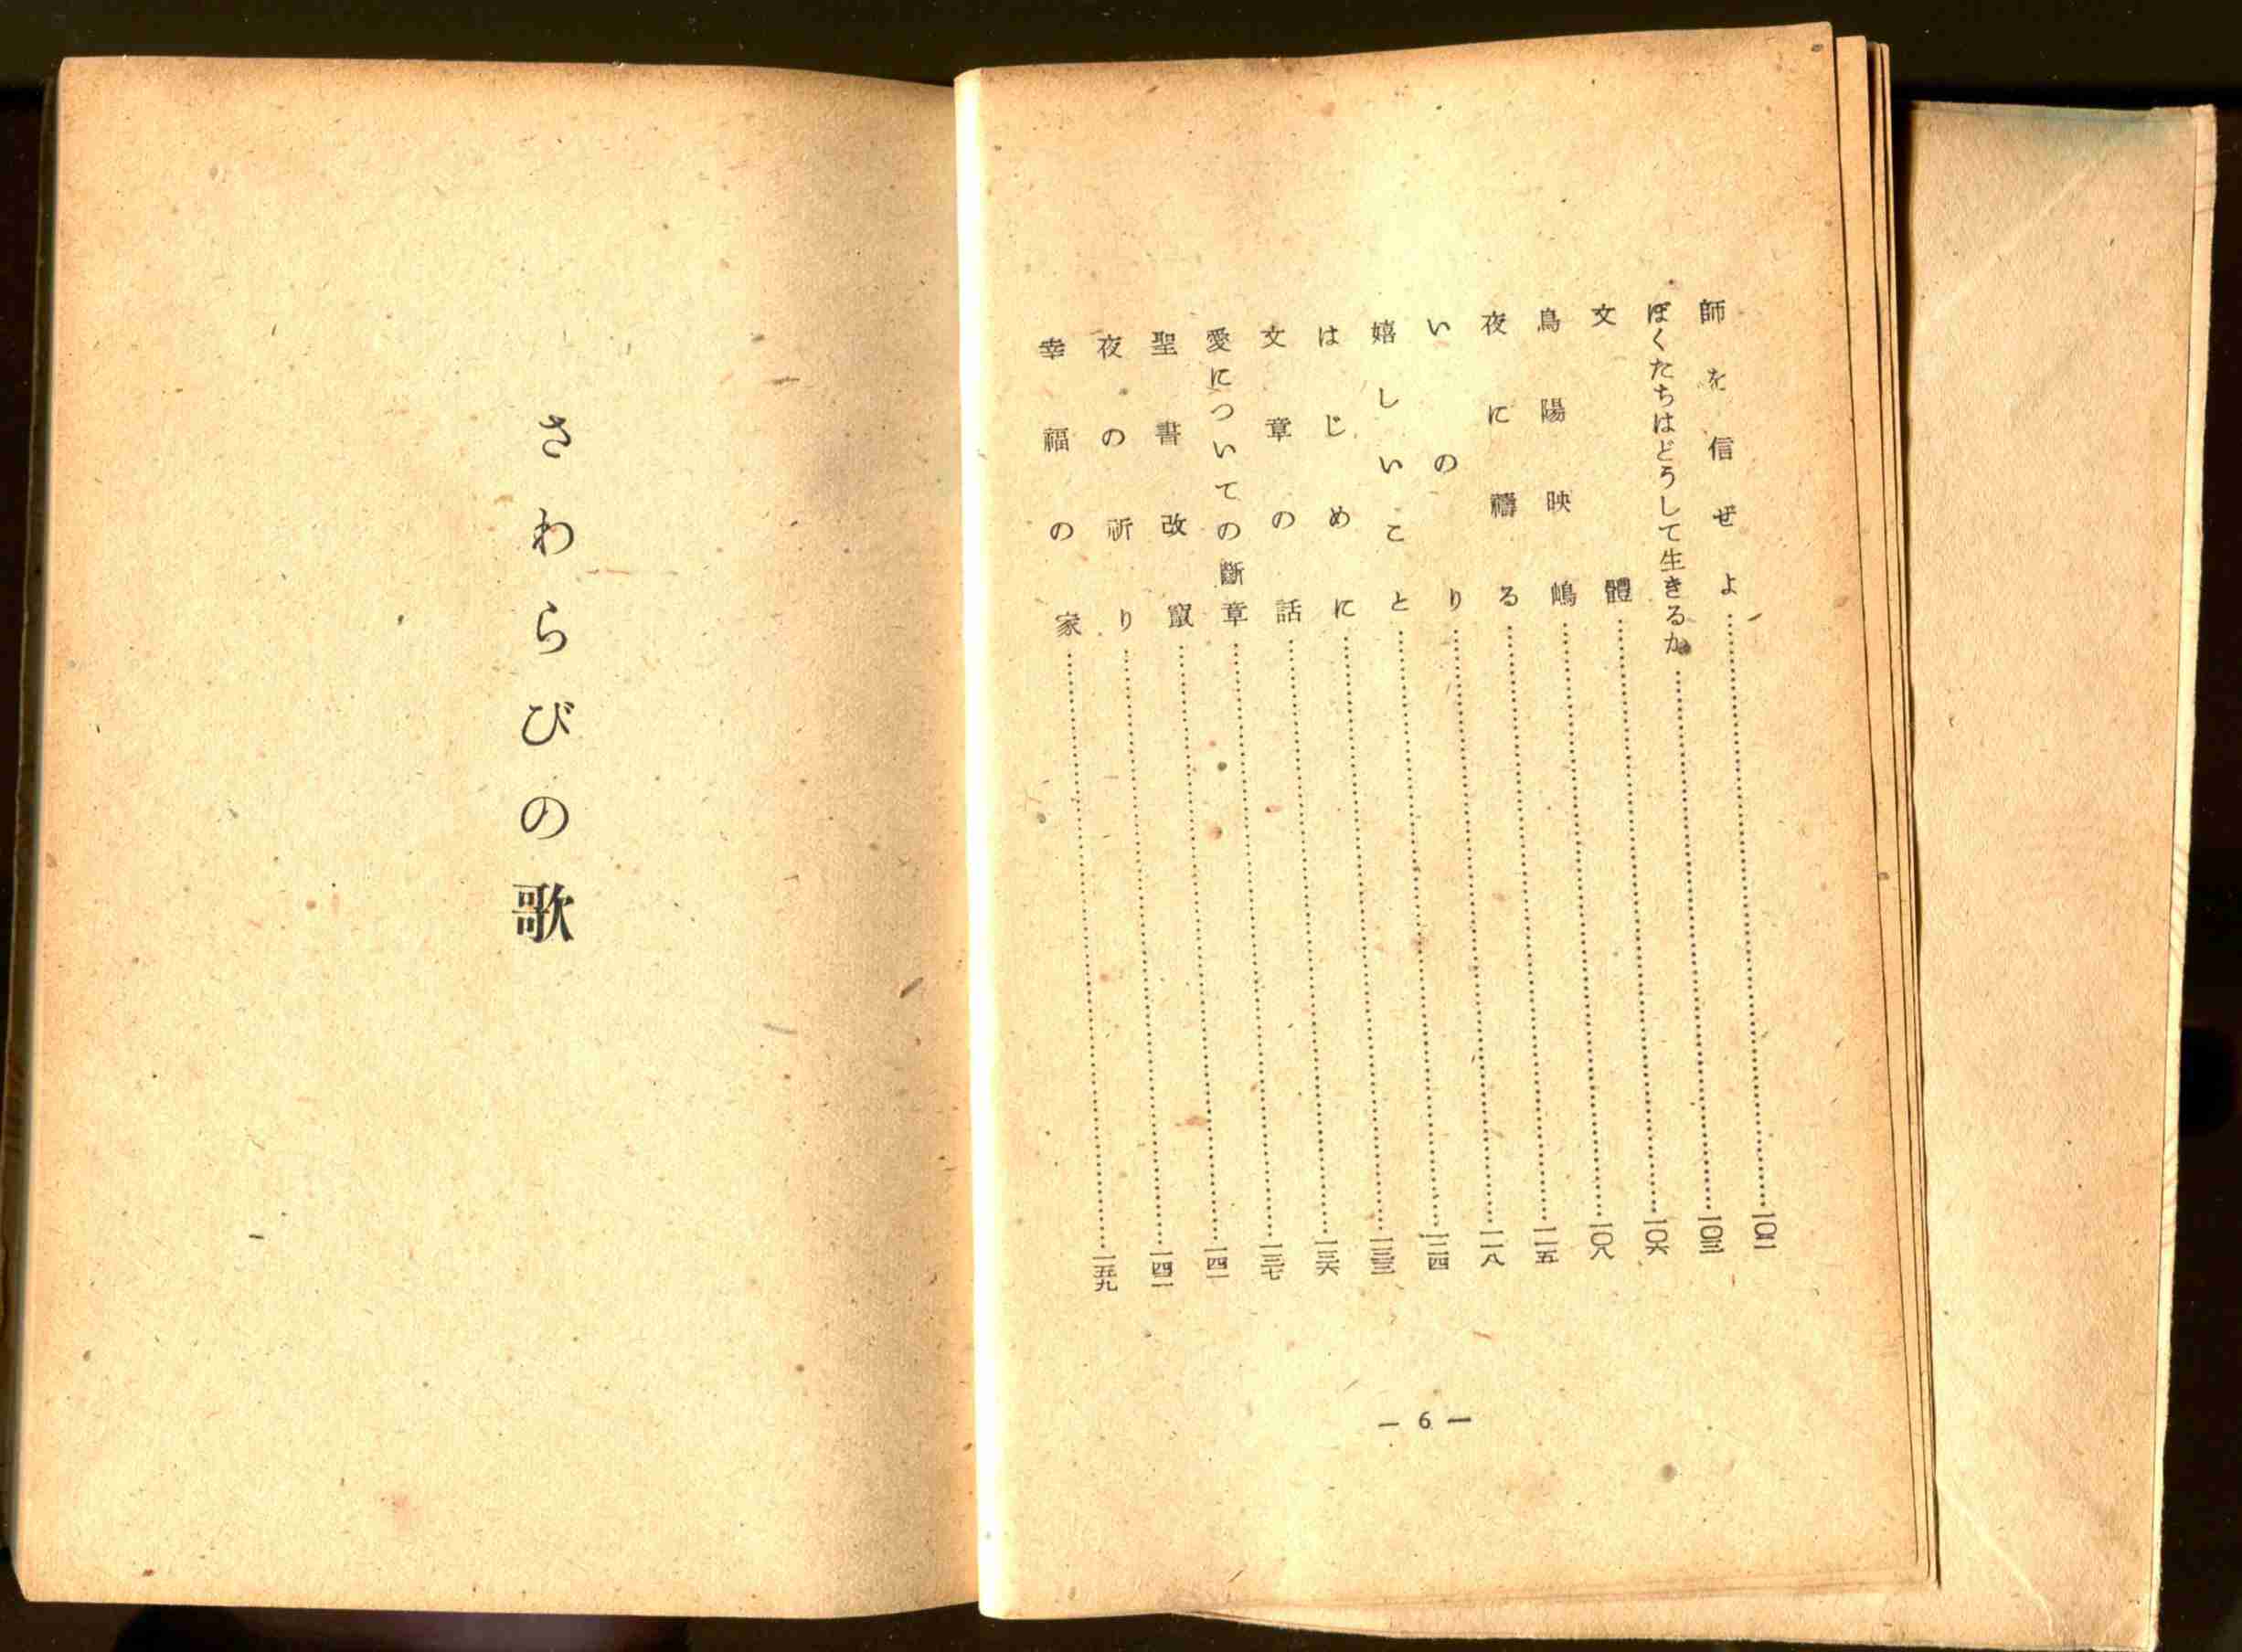 師を信ぜよ……一〇二
ぼくたちはどうして生きるか……一〇三
文體……一〇六
鳥陽映嶋……一〇八
夜に禱る……一一五
いのり……一一八
嬉しいこと……一二四
はじめに……一三三
文章の話……一三六
愛についての斷章……一三七
聖書改竄……一四一
夜の祈り……一四二
幸福の家……一五九
— 6 —
さわらびの歌